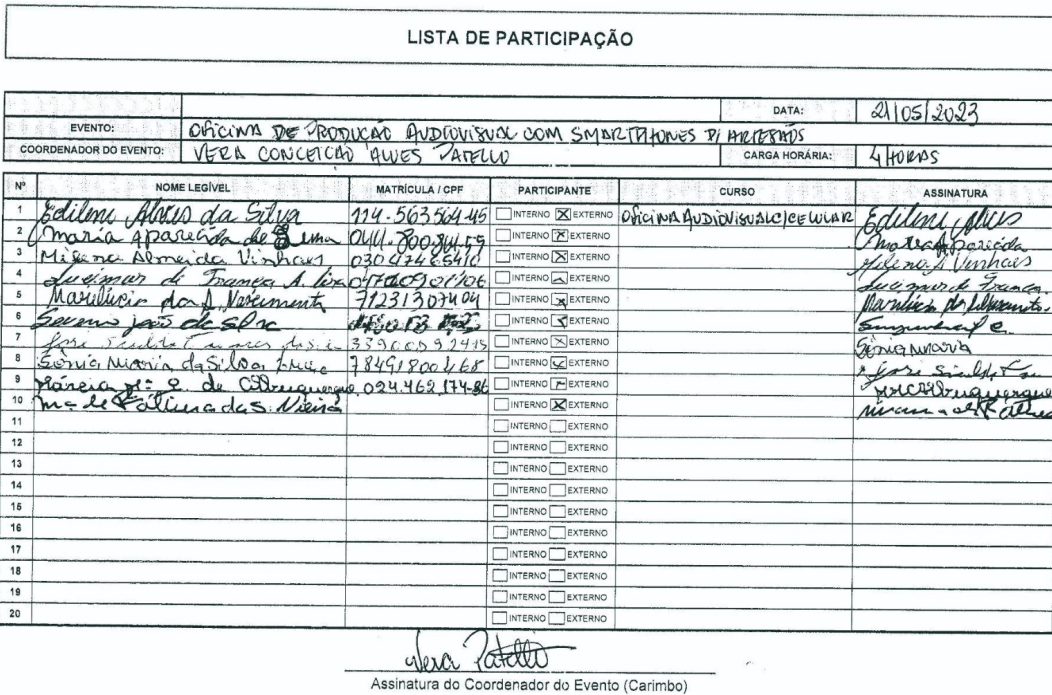 LISTA DE PARTICIPAÇÃO
DATA: 21/05/2023
EVENTO: OFICINA DE PRODUÇÃO AUDIOVISUAL COM SMARTPHONES P/ ARTESÃOS
COORDENADOR DO EVENTO: VERA CONCEICAO ALVES PATELLO CARGA HORÁRIA: 4 HORAS
Nº NOME LEGÍVEL MATRÍCULA / CPF PARTICIPANTE CURSO ASSINATURA
1 Edileni Alves da Silva 114.563564-45 INTERNO X EXTERNO OFICINA AUDIOVISUAL C/CELULAR Edileni Alves
2 maria Aparecida de Lima INTERNO X EXTERNO maria Aparecida
3 Milena Almeida Vinhaes 03047465410 INTERNO X EXTERNO Milena A Vinhaes
4 Lucimar de França A. INTERNO EXTERNO Lucimar de França
5 Marilúcia do Nascimento 71231307404 INTERNO X EXTERNO Marilúcia do
6 Severino joão da Silva INTERNO X EXTERNO
7 José INTERNO X EXTERNO Sônia maria
8 Sônia Maria da Silva 78491800468 INTERNO X EXTERNO josé
9 Márcia de Albuquerque 024.462.174-86 INTERNO EXTERNO Albuquerque
10 Mª de Fátima da S. Vieira INTERNO X EXTERNO
11 INTERNO EXTERNO
12 INTERNO EXTERNO
13 INTERNO EXTERNO
14 INTERNO EXTERNO
15 INTERNO EXTERNO
16 INTERNO EXTERNO
17 INTERNO EXTERNO
18 INTERNO EXTERNO
19 INTERNO EXTERNO
20 INTERNO EXTERNO
Vera Patello
Assinatura do Coordenador do Evento (Carimbo)